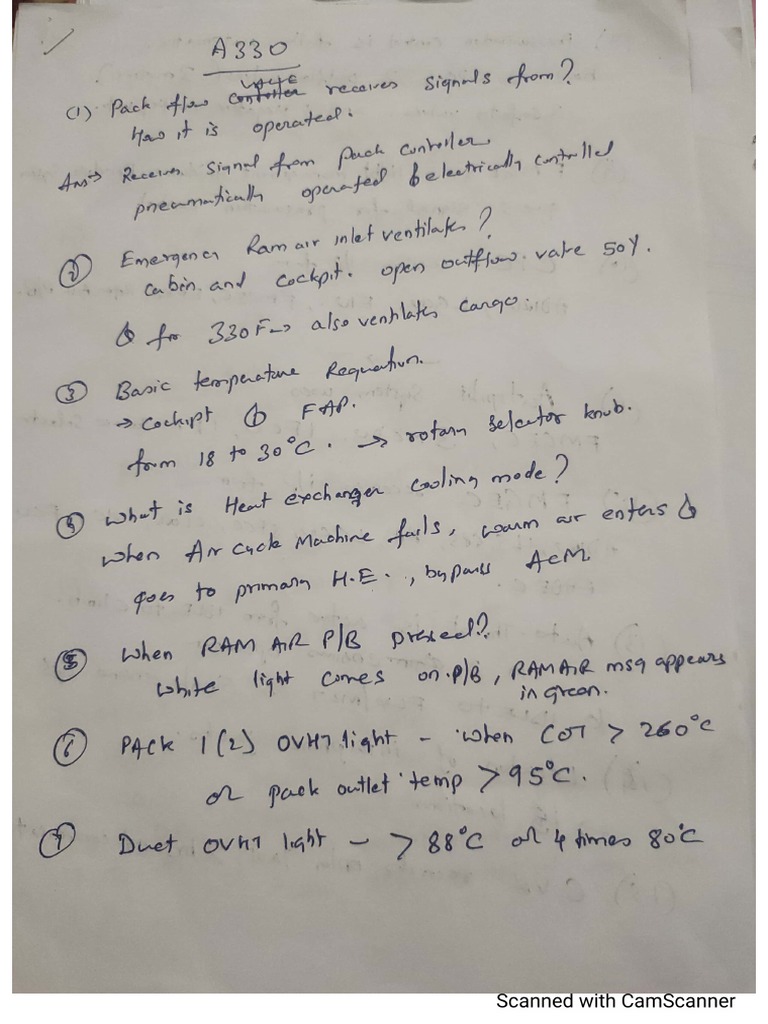 A330
(1) Pack flow valve receives signals from?
How it is operated.
Ans → Receives signal from pack controller.
pneumatically operated & electrically controlled
② Emergency Ram air inlet ventilates?
cabin and cockpit. open outflow valve 50%.
& for 330F → also ventilates cargo.
③ Basic temperature Requation.
→ cockpit & FAP.
from 18 to 30°C. → rotary selector knob.
④ what is Heat exchanger cooling mode?
when Air cycle Machine fails, warm air enters &
goes to primary H.E., bypass ACM
⑤ when RAM AIR P/B pressed?
white light comes on P/B, RAM AIR msg appears
in green.
⑥ PACK 1(2) OVHT light - when COT > 260°C
or pack outlet temp > 95°C.
⑦ Duct OVHT light - > 88°C or 4 times 80°C
Scanned with CamScanner